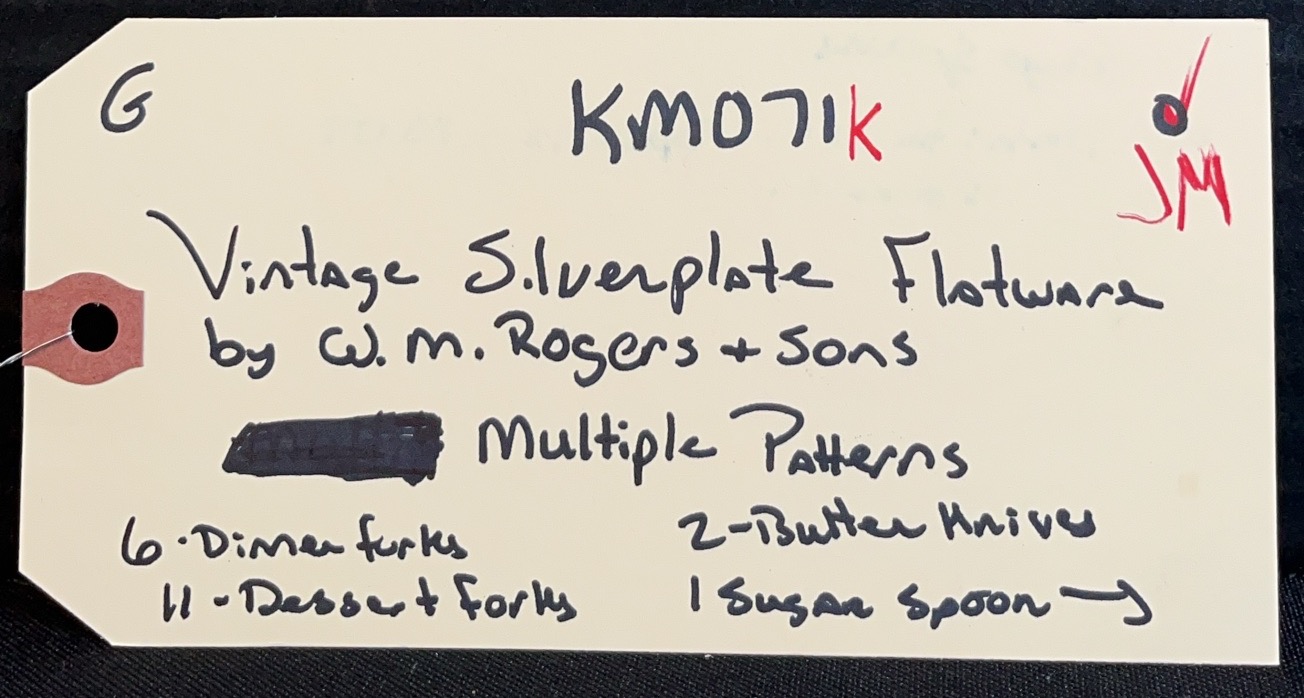 G KM071K
JM
Vintage Silverplate Flatware
by W.M. Rogers + Sons
Multiple Patterns
6-Dinner forks 2-Butter Knives
11-Dessert forks 1 Sugar Spoon →